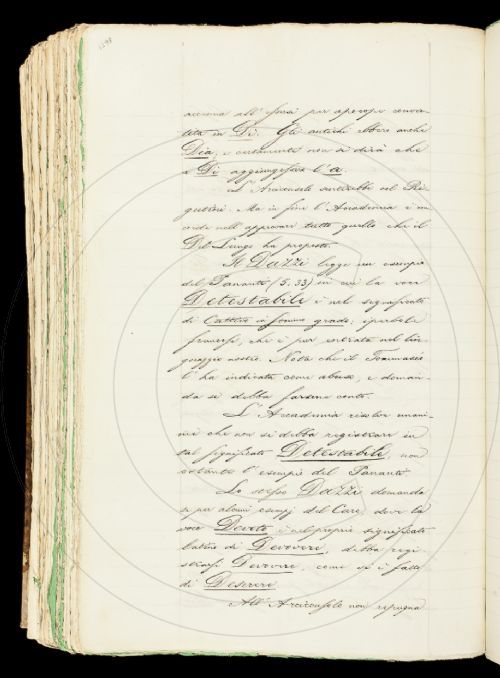 accenna all' uso per apocope conver-
tita in Di. Gli antichi ebbero anche
Dia, e certamente non si dirà che
a Di aggiungessero l' a.
L' Arciconsolo starebbe col Ri-
gutini. Ma in fine l' Accademia è con-
corde nell' approvare tutto quello che il
Del Lungo ha proposto.
Il Dazzi legge un esempio
del Pananti (5. 33) in cui la voce
Detestabile è nel significato
di Cattivo in sommo grado; iperbole
francese, che è pur entrata nel lin-
guaggio nostro. Nota che il Tommaseo
l' ha indicata come abuso, e doman-
da se debba farsene conto.
L' Accademia risolve unani-
me che non si debba registrare in
tal significato Detestabile, non
ostante l' esempio del Pananti.
Lo stesso Dazzi domanda
se per alcuni esempj del Caro, dove la
voce Devoto è nel proprio significato
latino di Devovere, debba regi-
strarsi Devovere, come si è fatto
di Deserere.
All' Arciconsolo non repugna